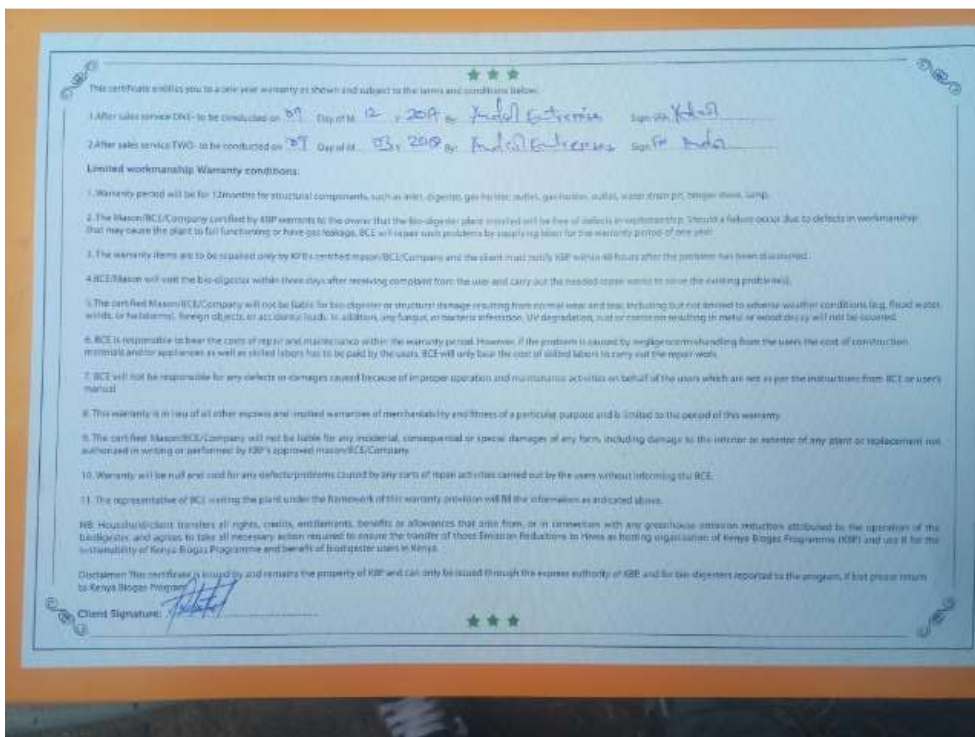 This certificate entitles you to a one year warranty as shown and subject to the terms and conditions below:
1.After sales service ONE- to be conducted on 09 Day of M. 12 Y 2017 By Enterprise Sign
2.After sales service TWO- to be conducted on 09 Day of M. 03 Y 2018 By: Enterprises Sign
Limited workmanship Warranty conditions:
1. Warranty period will be for 12months for structural components, such as inlet, digester, gas holder, outlet, gas holder, outlet, water drain pit, biogas stove, lamp.
2. The Mason/BCE/Company certified by KBP warrants to the owner that the bio-digester plant installed will be free of defects in workmanship. Should a failure occur due to defects in workmanship
that may cause the plant to fail functioning or have gas leakage, BCE will repair such problems by supplying labor for the warranty period of one year.
3. The warranty items are to be repaired only by certified mason/BCE/Company and the client must notify KBP within 48 hours after the problem has been discovered.
4.BCE/Mason will visit the bio-digester within three days after receiving complaint from the user and carry out the needed repair works to solve the existing problem(s).
5.The certified Mason/BCE/Company will not be liable for bio-digester or structural damage resulting from normal wear and tear, including but not limited to adverse weather conditions (e.g. flood water,
winds, or hailstorms), foreign objects, or accidental loads. In addition, any fungus, or bacteria infestation, UV degradation, rust or corrosion resulting in metal or wood decay will not be covered.
6. BCE is responsible to bear the costs of repair and maintenance within the warranty period. However, if the problem is caused by negligence/mishandling from the users the cost of construction
materials and/or appliances as well as skilled labors has to be paid by the users. BCE will only bear the cost of skilled labors to carry out the repair work.
7. BCE will not be responsible for any defects or damages caused because of improper operation and maintenance activities on behalf of the users which are not as per the instructions from BCE or user's
manual
8. This warranty is in lieu of all other express and implied warranties of merchantability and fitness of a particular purpose and is limited to the period of this warranty.
9. The certified Mason/BCE/Company will not be liable for any incidental, consequential or special damages of any form, including damage to the interior or exterior of any plant or replacement not
authorized in writing or performed by KBP's approved mason/BCE/Company.
10. Warranty will be null and void for any defects/problems caused by any sorts of repair activities carried out by the users without informing the BCE.
11. The representative of BCE visiting the plant under the framework of this warranty provision will fill the information as indicated above.
NB: Household/client transfers all rights, credits, entitlements, benefits or allowances that arise from, or in connection with any greenhouse emission reduction attributed to the operation of the
biodigester, and agrees to take all necessary action required to ensure the transfer of those Emission Reductions to Hivos as hosting organisation of Kenya Biogas Programme (KBP) and use it for the
sustainability of Kenya Biogas Programme and benefit of biodigester users in Kenya.
Disclaimer: This certificate is issued by and remains the property of KBP and can only be issued through the express authority of KBP and for bio-digesters reported to the program, if lost please return
to Kenya Biogas Program
Client Signature: